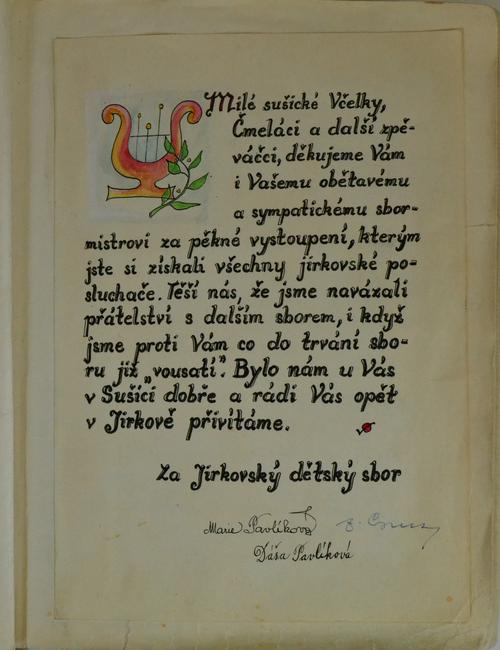 Milé sušické Včelky,
Čmeláci a další zpě-
váčci, děkujeme Vám
i Vašemu obětavému
a sympatickému sbor-
mistrovi za pěkné vystoupení, kterým
jste si získali všechny jirkovské po-
sluchače. Těší nás, že jsme navázali
přátelství s dalším sborem, i když
jsme proti Vám co do trvání sbo-
ru již „vousatí". Bylo nám u Vás
v Sušici dobře a rádi Vás opět
v Jirkově přivítáme.
Za Jirkovský dětský sbor
Marie Pavlíková
Dáša Pavlíková